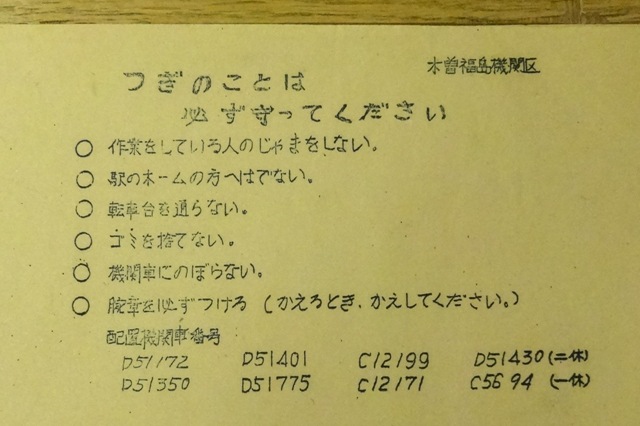 木曽福島機関区
つぎのことは
必ず守ってください
○ 作業をしている人のじゃまをしない。
○ 駅のホームの方へはでない。
○ 転車台を通らない。
○ ゴミを捨てない。
○ 機関車にのぼらない。
○ 腕章を必ずつける (かえるとき、かえしてください。)
配置機関車番号
D51172 D51401 C12199 D51430(二休)
D51350 D51775 C12171 C5694 (一休)